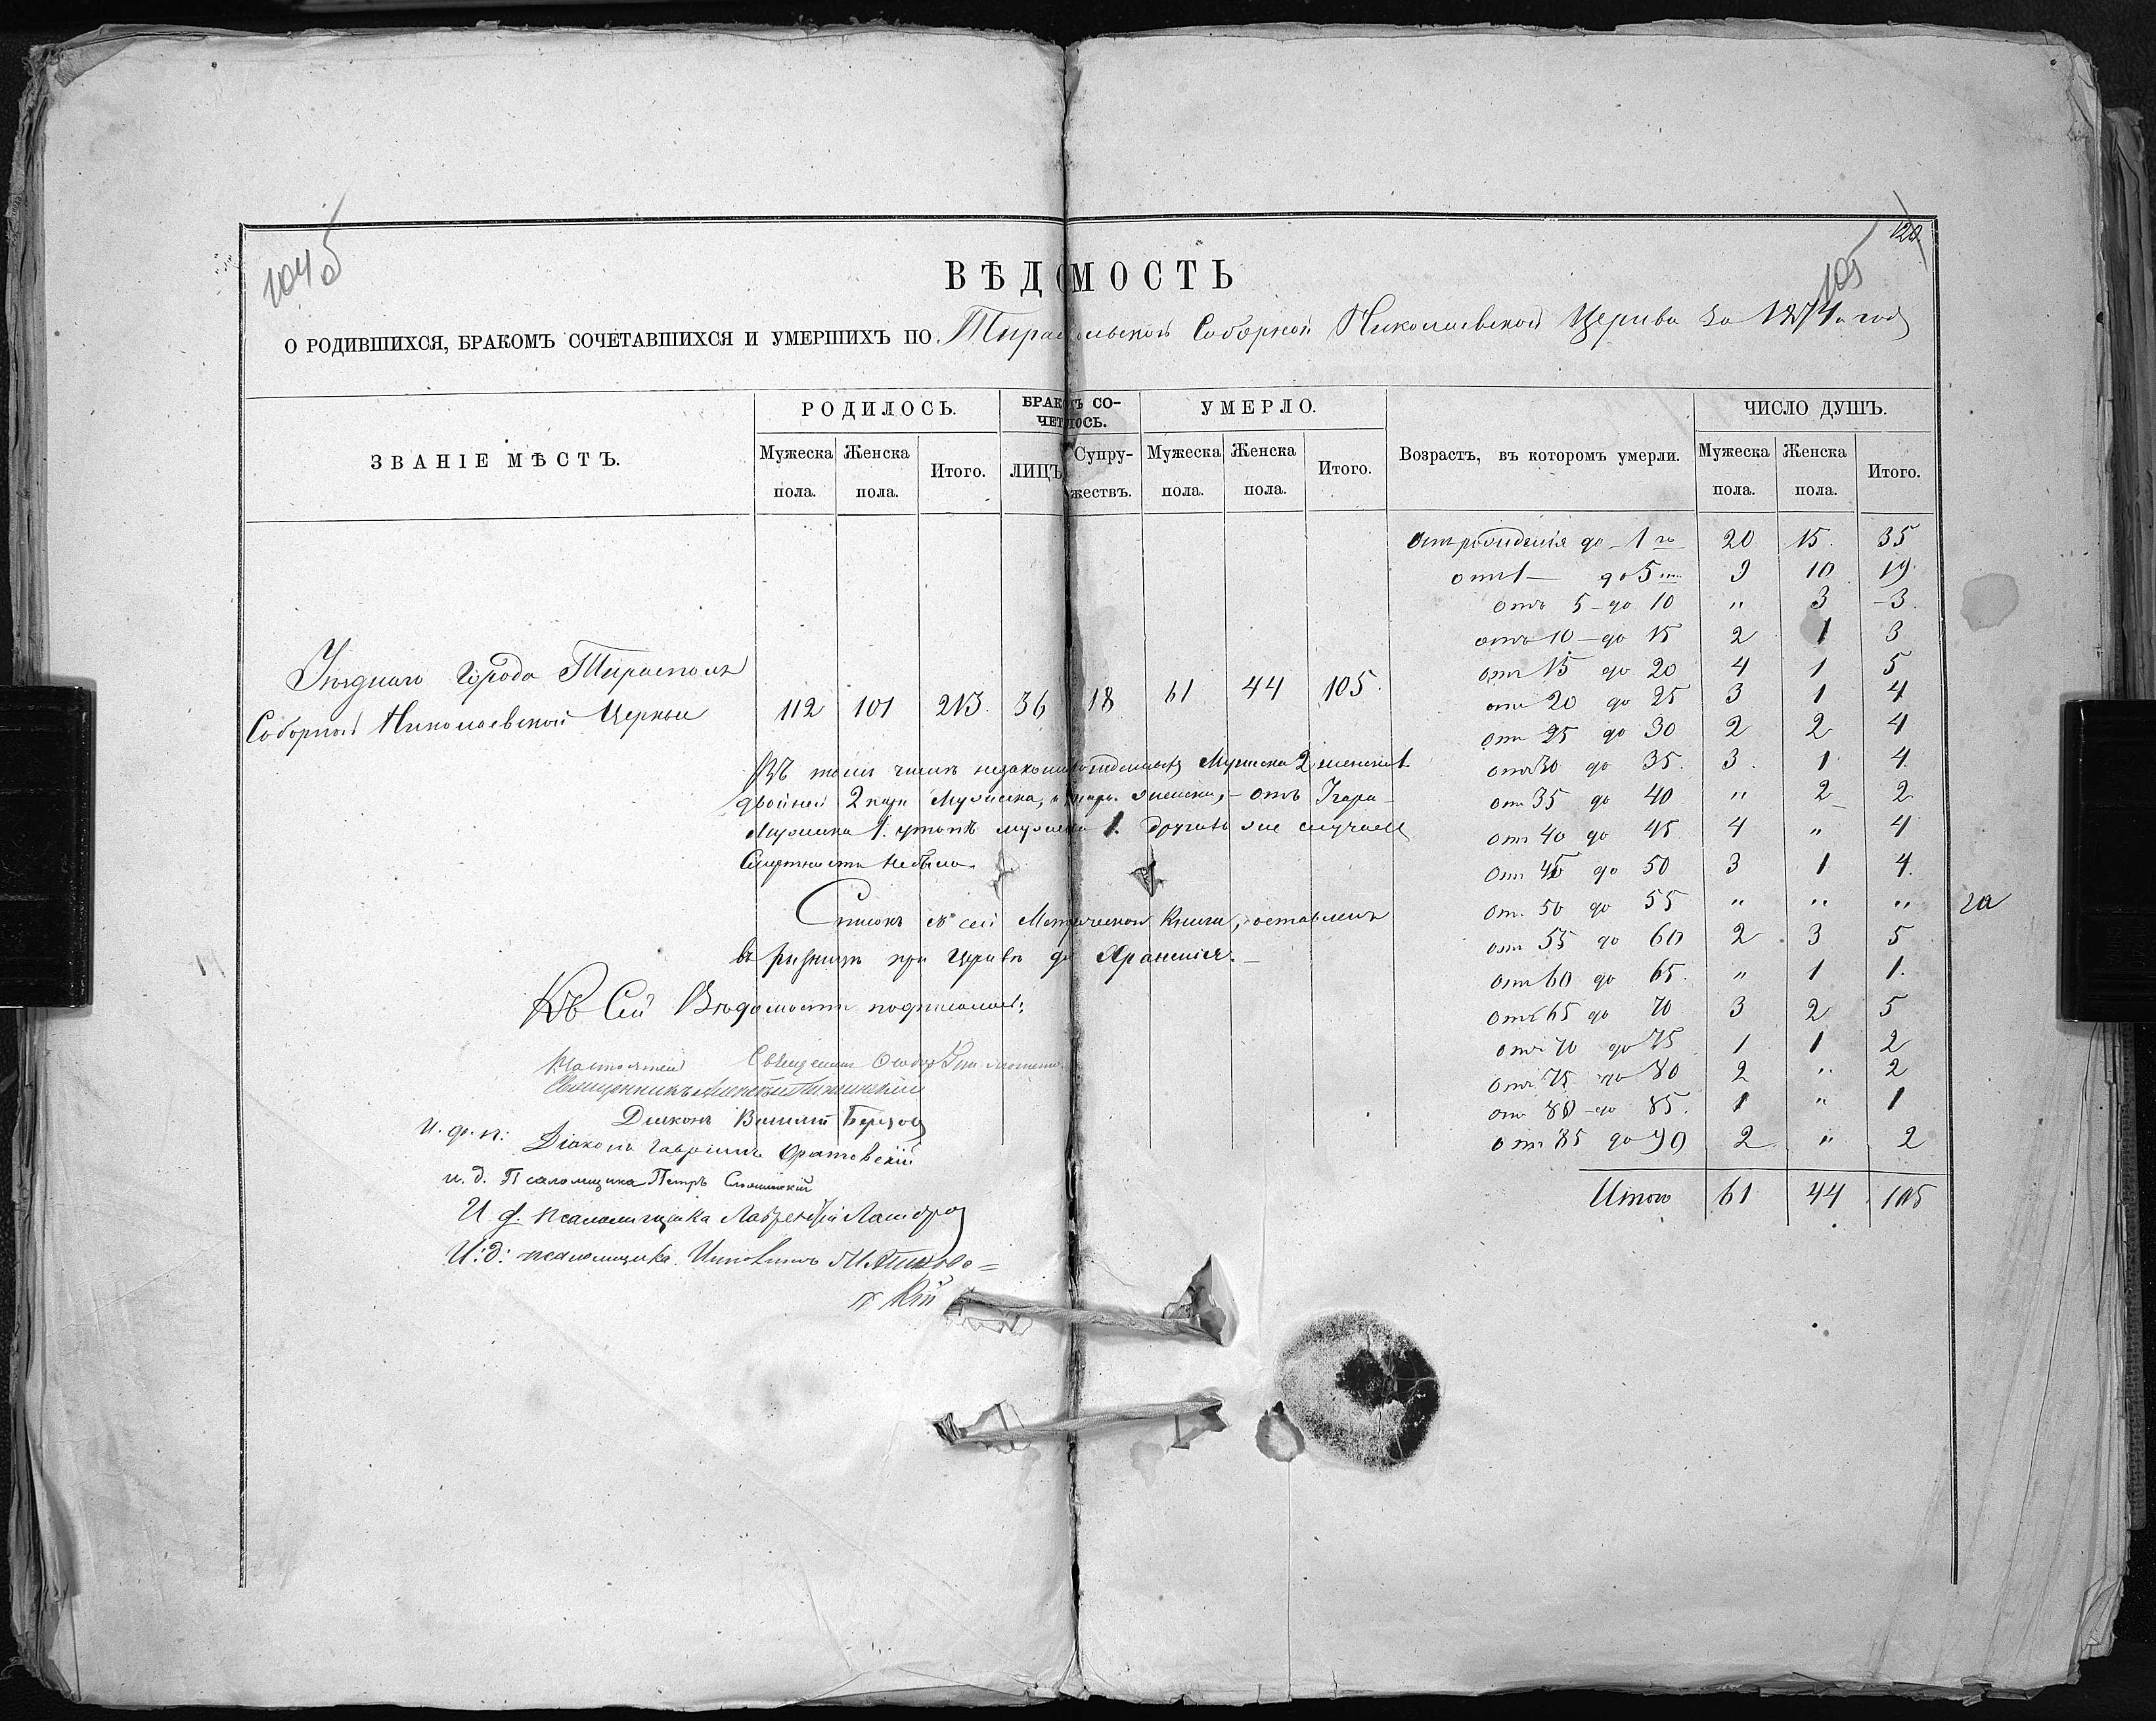 104б
120
105
ВѢДОМОСТЬ
О РОДИВШИХСЯ, БРАКОМЪ СОЧЕТАВШИХСЯ И УМЕРШИХЪ ПО Тираспольской Соборной Николаевской Церкви за 1874 годъ
ЗВАНІЕ МѢСТЪ.
РОДИЛОСЬ.
БРАКОМЪ СО-
ЧЕТАЛОСЬ.
УМЕРЛО.
Возрастъ, въ которомъ умерли.
ЧИСЛО ДУШЪ.
Мужеска пола.
Женска пола.
Итого.
ЛИЦЪ
Супру-
жествъ.
Мужеска пола.
Женска пола.
Итого.
Мужеска пола.
Женска пола.
Итого.
Уѣзднаго города Тирасполя
Соборной Николаевской Церкви
112 101 213. 36 18 61 44 105.
Въ томъ числѣ незаконнорожденныхъ Мужеска 2 женска 1.
двойней 2 пары Мужеска, женска, – отъ
Мужеска 1. мужеска 1. другихъ же случаевъ
Смертности небыло.
Списокъ съ сей Метрической Книги, оставленъ
въ ризницѣ при Церкви для Храненія. –
Къ Сей Вѣдомости подписались:
Настоятель Священникъ
Священникъ
Діаконъ Василій Березов
И. д. п: Діаконъ Гавріилъ
и. д. Псаломщика Петръ
И. д. псаломщика Лаврентій
И: д: псаломщика.
кій
Отъ рожденія до – 1 го 20 15. 35
отъ 1 – до 5 ти 9 10 19.
отъ 5 – до 10 " 3 – 3.
отъ 10 – до 15 2 1 3
отъ 15 до 20 4 1 5
отъ 20 до 25 3 1 4
отъ 25 до 30 2 2 4
отъ 30 до 35. 3. 1 4.
отъ 35 до 40 " 2 2
отъ 40 до 45 4 " 4
отъ 45 до 50 3 1 4.
от. 50 до 55 " " "
отъ 55 до 60 2 3 5
отъ 60 до 65. " 1 1.
отъ 65 до 70 3 2 5
отъ 70 до 75 1 1 2
отъ 75 до 80 2 " 2
отъ 80 – до 85. 1 " 1
отъ 85 до 90 2 " 2
Итого 61 44 105